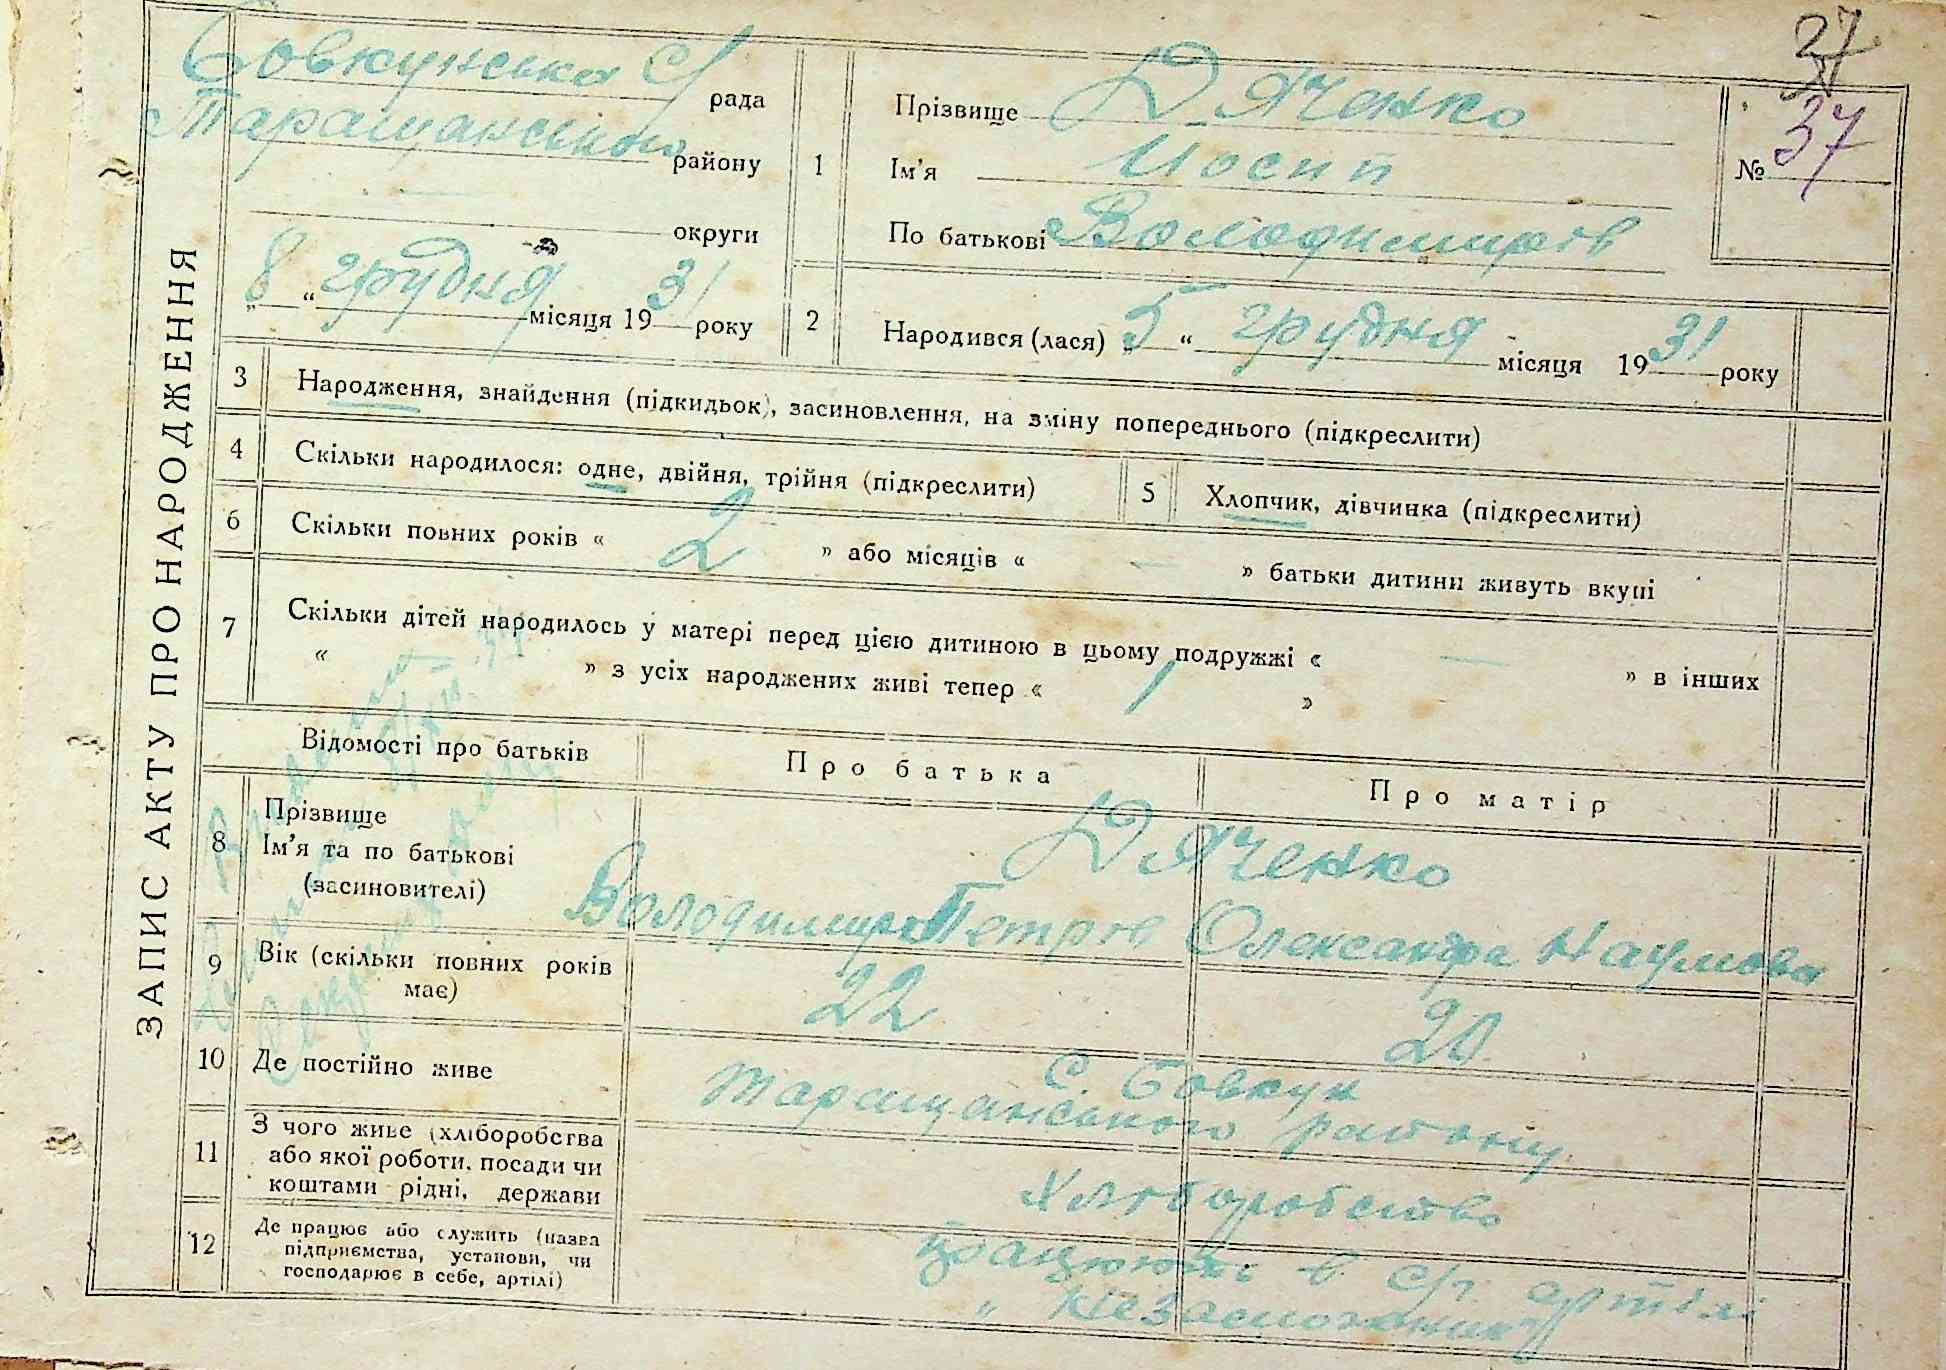 37
ЗАПИС АКТУ ПРО НАРОДЖЕННЯ
Бовкунська с/ рада
Таращанського району
— округи
„8“ грудня місяця 1931 року
1
Прізвище Дяченко
Ім'я Иосип
По батькові Володимиров
№ 37
2
Народився (лася) „5“ грудня місяця 1931 року
3 Народження, знайдення (підкидьок), засиновлення, на зміну попереднього (підкреслити)
4 Скільки народилося: одне, двійня, трійня (підкреслити)
5 Хлопчик, дівчинка (підкреслити)
6 Скільки повних років « 2 » або місяців « — » батьки дитини живуть вкупі
7 Скільки дітей народилось у матері перед цією дитиною в цьому подружжі « — » в інших
« » з усіх народжених живі тепер « 1 »
Відомості про батьків
Про батька
Про матір
8 Прізвище
Ім'я та по батькові
(засиновителі)
Дяченко
Володимир Петров Олександра Наумова
9 Вік (скільки повних років має)
22
20
10 Де постійно живе
с. Бовкун
Таращанського району
11 З чого живе (хліборобства
або якої роботи, посади чи
коштами рідні, держави
Хліборобство
12 Де працює або служить (назва
підприємства, установи, чи
господарює в себе, артілі)
працюють в с/г артілі
„Незаможник“